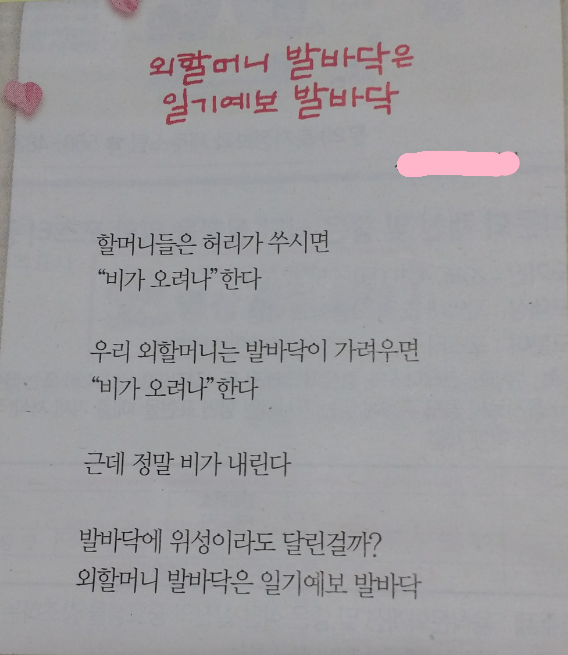 외할머니 발바닥은
일기예보 발바닥
할머니들은 허리가 쑤시면
“비가 오려나”한다
우리 외할머니는 발바닥이 가려우면
“비가 오려나”한다
근데 정말 비가 내린다
발바닥에 위성이라도 달린걸까?
외할머니 발바닥은 일기예보 발바닥